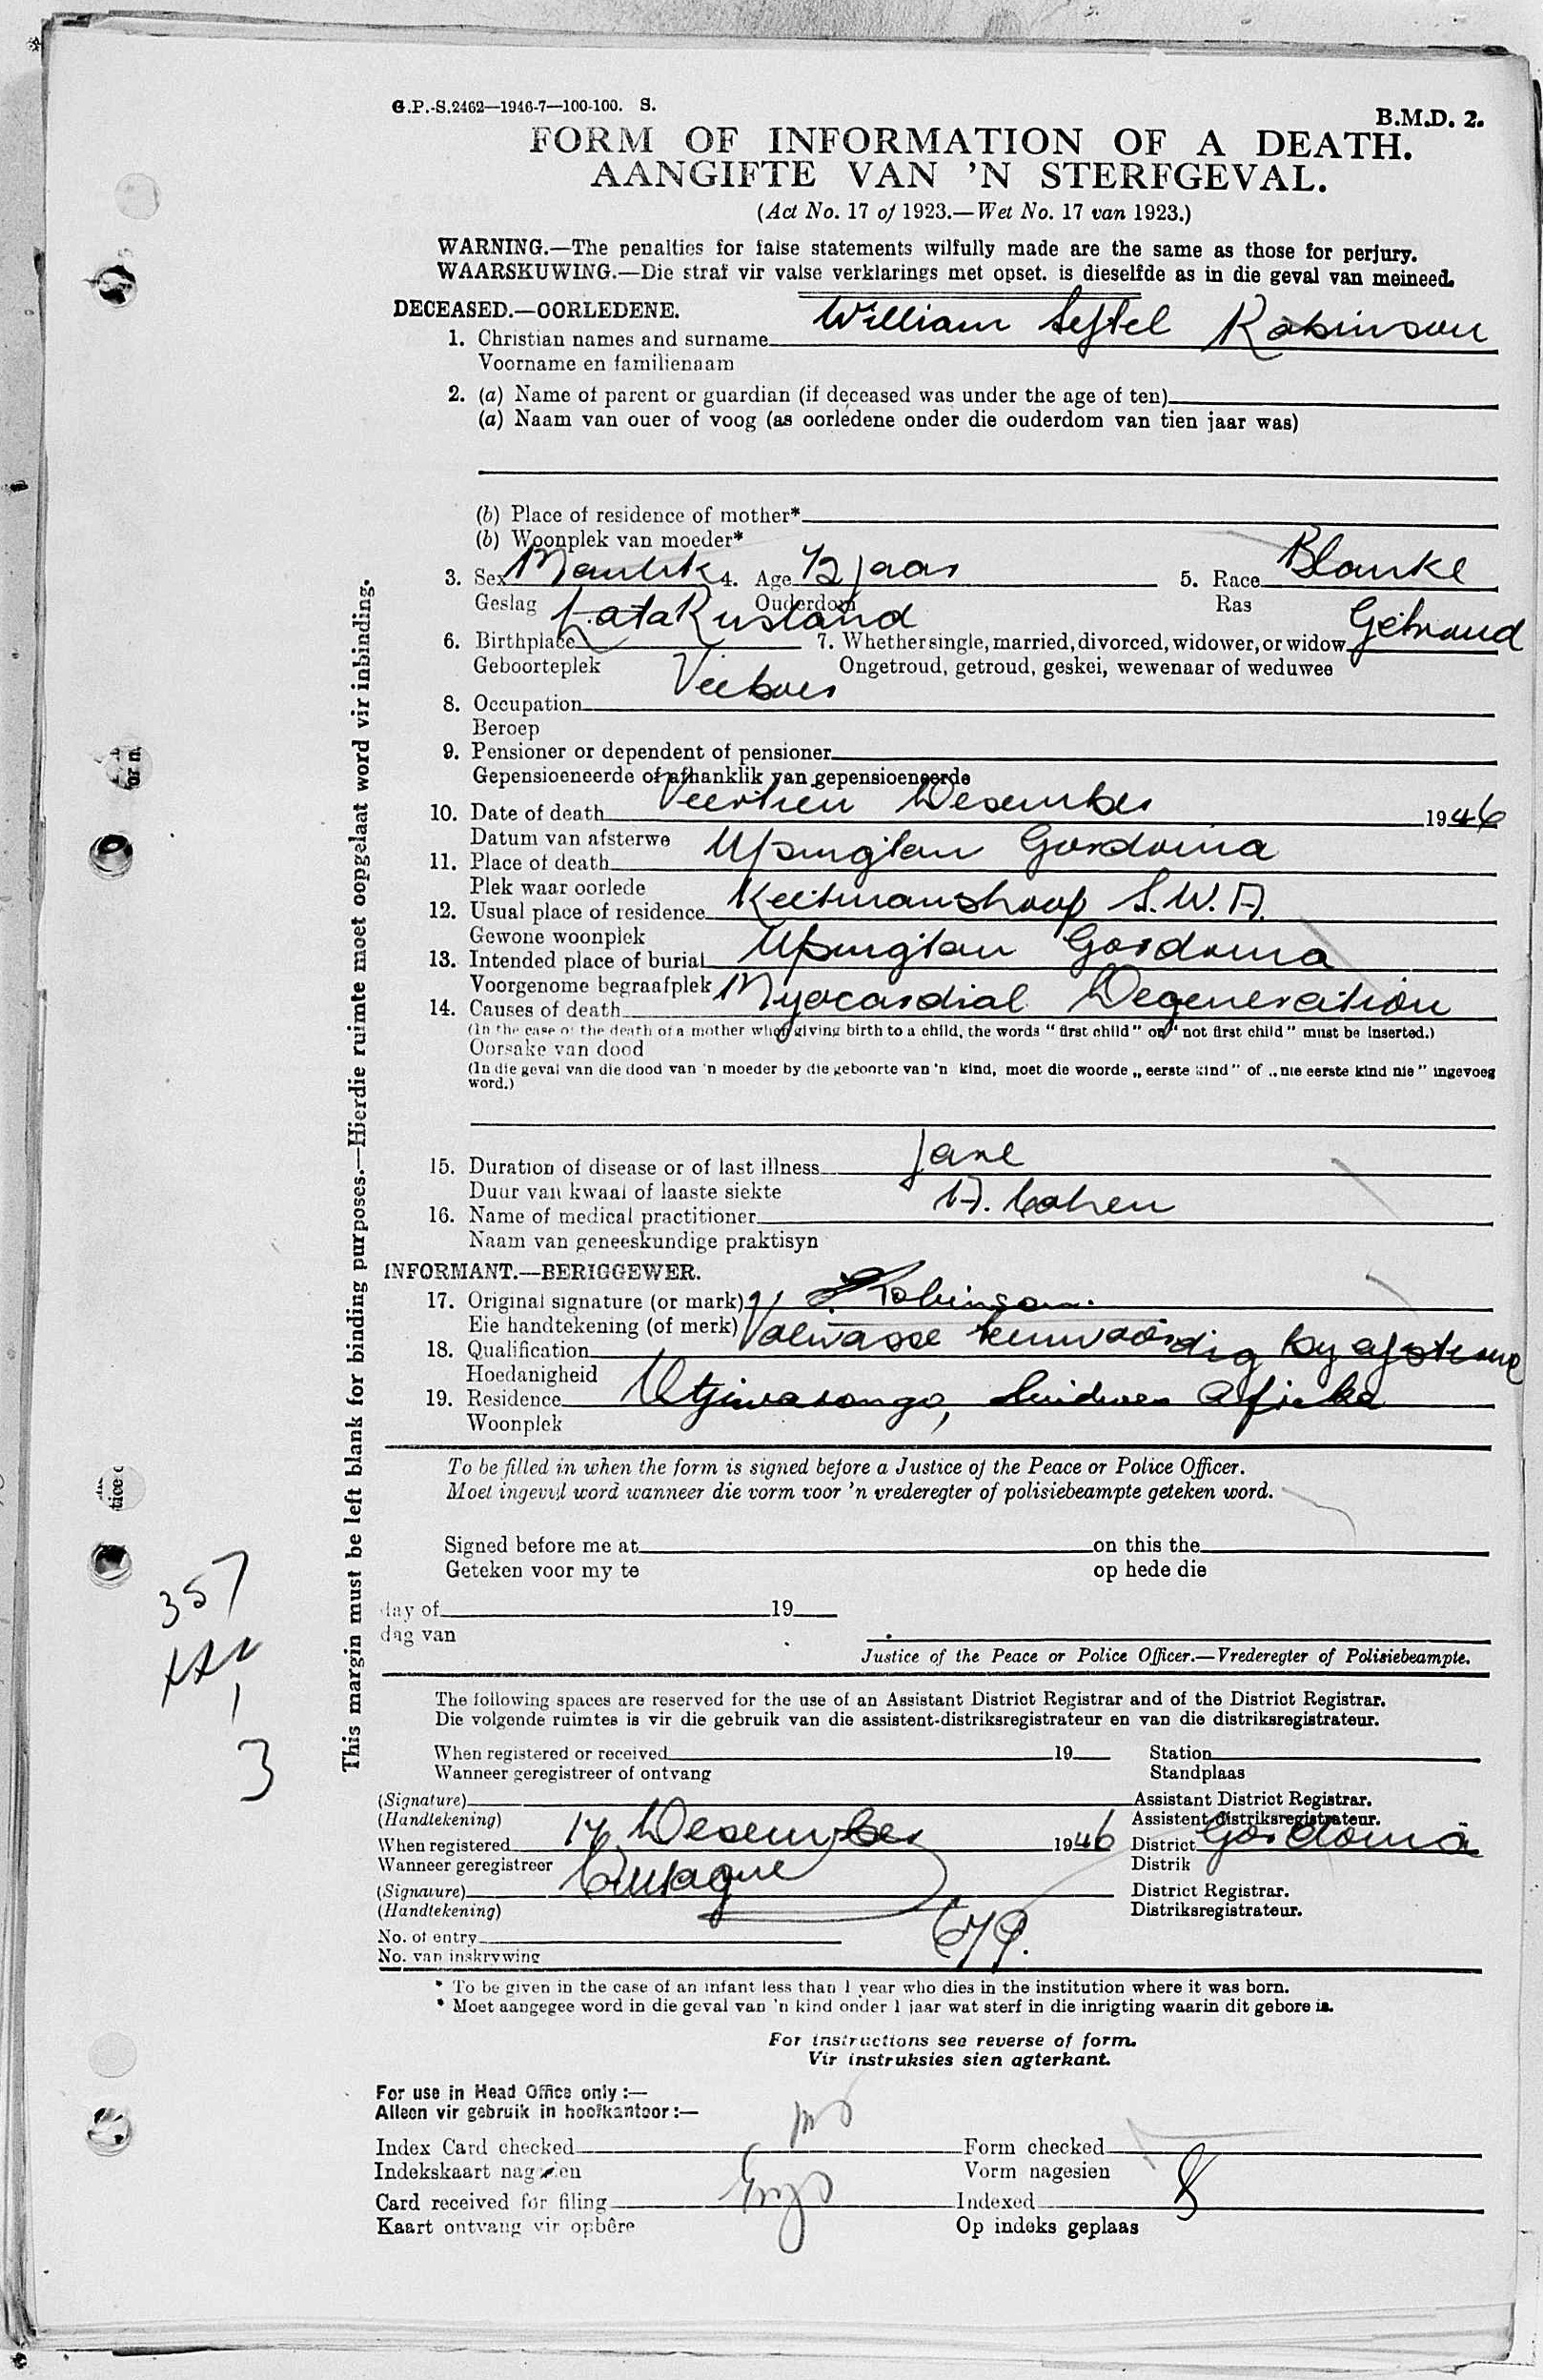 G.P.-S.2462—1946-7—100-100. S.
B.M.D. 2.
FORM OF INFORMATION OF A DEATH.
AANGIFTE VAN 'N STERFGEVAL.
(Act No. 17 of 1923.—Wet No. 17 van 1923.)
WARNING.—The penalties for false statements wilfully made are the same as those for perjury.
WAARSKUWING.—Die straf vir valse verklarings met opset. is dieselfde as in die geval van meineed.
DECEASED.—OORLEDENE.
1. Christian names and surname William Robinson
Voorname en familienaam
2. (a) Name of parent or guardian (if deceased was under the age of ten)
(a) Naam van ouer of voog (as oorledene onder die ouderdom van tien jaar was)
(b) Place of residence of mother*
(b) Woonplek van moeder*
3. Sex Manlik 4. Age 72 jaar 5. Race Blanke
Geslag Ouderdom Ras
6. Birthplace 7. Whether single, married, divorced, widower, or widow Getroud
Geboorteplek Ongetroud, getroud, geskei, wewenaar of weduwee
8. Occupation Veeboer
Beroep
9. Pensioner or dependent of pensioner
Gepensioeneerde of afhanklik van gepensioeneerde
10. Date of death Veertien Desember 1946
Datum van afsterwe
11. Place of death Upington Gordonia
Plek waar oorlede
12. Usual place of residence Keetmanshoop S.W.A.
Gewone woonplek
13. Intended place of burial Upington Gordonia
Voorgenome begraafplek
14. Causes of death Myocardial Degeneration
(In the case of the death of a mother when giving birth to a child, the words "first child" or "not first child" must be inserted.)
Oorsake van dood
(In die geval van die dood van 'n moeder by die geboorte van 'n kind, moet die woorde „eerste kind" of „nie eerste kind nie" ingevoeg
word.)
15. Duration of disease or of last illness Jare
Duur van kwaal of laaste siekte
16. Name of medical practitioner A. Cohen
Naam van geneeskundige praktisyn
INFORMANT.—BERIGGEWER.
17. Original signature (or mark) Robinson.
Eie handtekening (of merk)
18. Qualification Volwasse teenwoordig by afsterwe
Hoedanigheid
19. Residence Otjiwarongo, Suidwes Afrika
Woonplek
To be filled in when the form is signed before a Justice of the Peace or Police Officer.
Moet ingevul word wanneer die vorm voor 'n vrederegter of polisiebeampte geteken word.
Signed before me at on this the
Geteken voor my te op hede die
day of 19
dag van
Justice of the Peace or Police Officer.—Vrederegter of Polisiebeampte.
The following spaces are reserved for the use of an Assistant District Registrar and of the District Registrar.
Die volgende ruimtes is vir die gebruik van die assistent-distriksregistrateur en van die distriksregistrateur.
When registered or received 19 Station
Wanneer geregistreer of ontvang Standplaas
(Signature) Assistant District Registrar.
(Handtekening) Assistent-distriksregistrateur.
When registered Desember 1946 District Gordonia
Wanneer geregistreer Distrik
(Signature) District Registrar.
(Handtekening) Distriksregistrateur.
No. of entry 679.
No. van inskrywing
* To be given in the case of an infant less than 1 year who dies in the institution where it was born.
* Moet aangegee word in die geval van 'n kind onder 1 jaar wat sterf in die inrigting waarin dit gebore is.
For instructions see reverse of form.
Vir instruksies sien agterkant.
For use in Head Office only:—
Alleen vir gebruik in hoofkantoor:—
Index Card checked Form checked
Indekskaart nagesien Vorm nagesien
Card received for filing Indexed
Kaart ontvang vir opbêre Op indeks geplaas
This margin must be left blank for binding purposes.—Hierdie ruimte moet oopgelaat word vir inbinding.
357
3